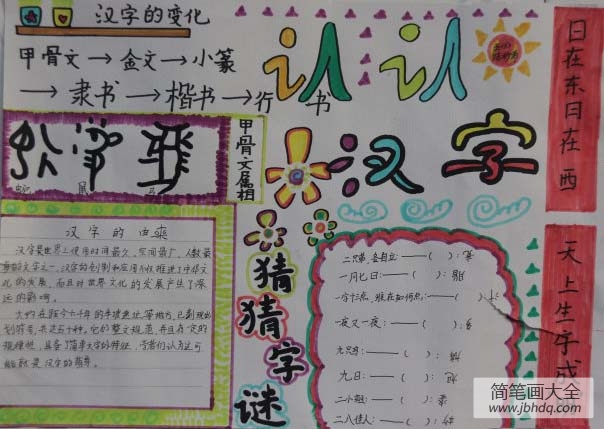 汉字的变化
甲骨文→金文→小篆
→隶书→楷书→行书
认认
汉字
甲骨文属相
鼠
汉字的由来
汉字是世界上使用时间最久、空间最广、人数最
多的文字之一,汉字的创制和应用不仅推进了中华文
化的发展,而且对世界文化的发展产生了深
远的影响。
大约在距今六千年的半坡遗址等地方,已经出现
刻划符号,共达五十种。它们整文规范,并且有一定的
规律性,具备了简单文字的特征,学者们认为这可
能就是汉字的萌芽。
猜猜字谜
二兄弟,各自立——( ):
一月七日:——( ):脂
一字十二点,难在如何点:——( )
一夜又一夜:——( ):多
九只鸟:——( ):鸠
九日:——( ):旭
二小姐:——( ):
二八佳人:——( ):
日在东月在西
天上生字成
简笔画大全
www.jbhdq.com